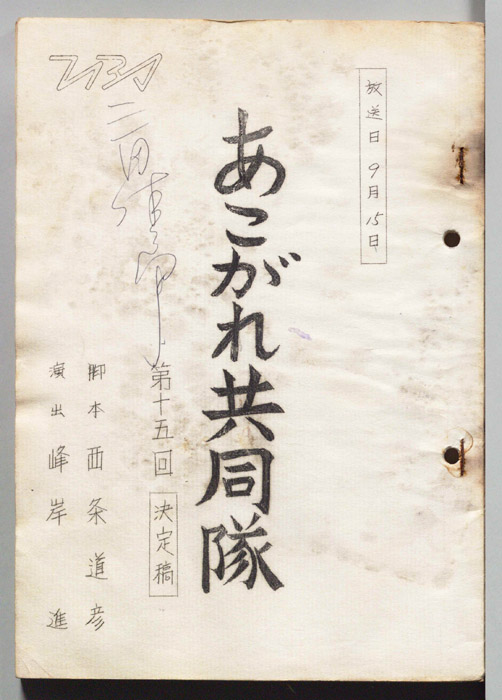 放送日 9月15日
あこがれ共同隊
第十五回 決定稿
TBS
脚本 西条道彦
演出 峰岸進